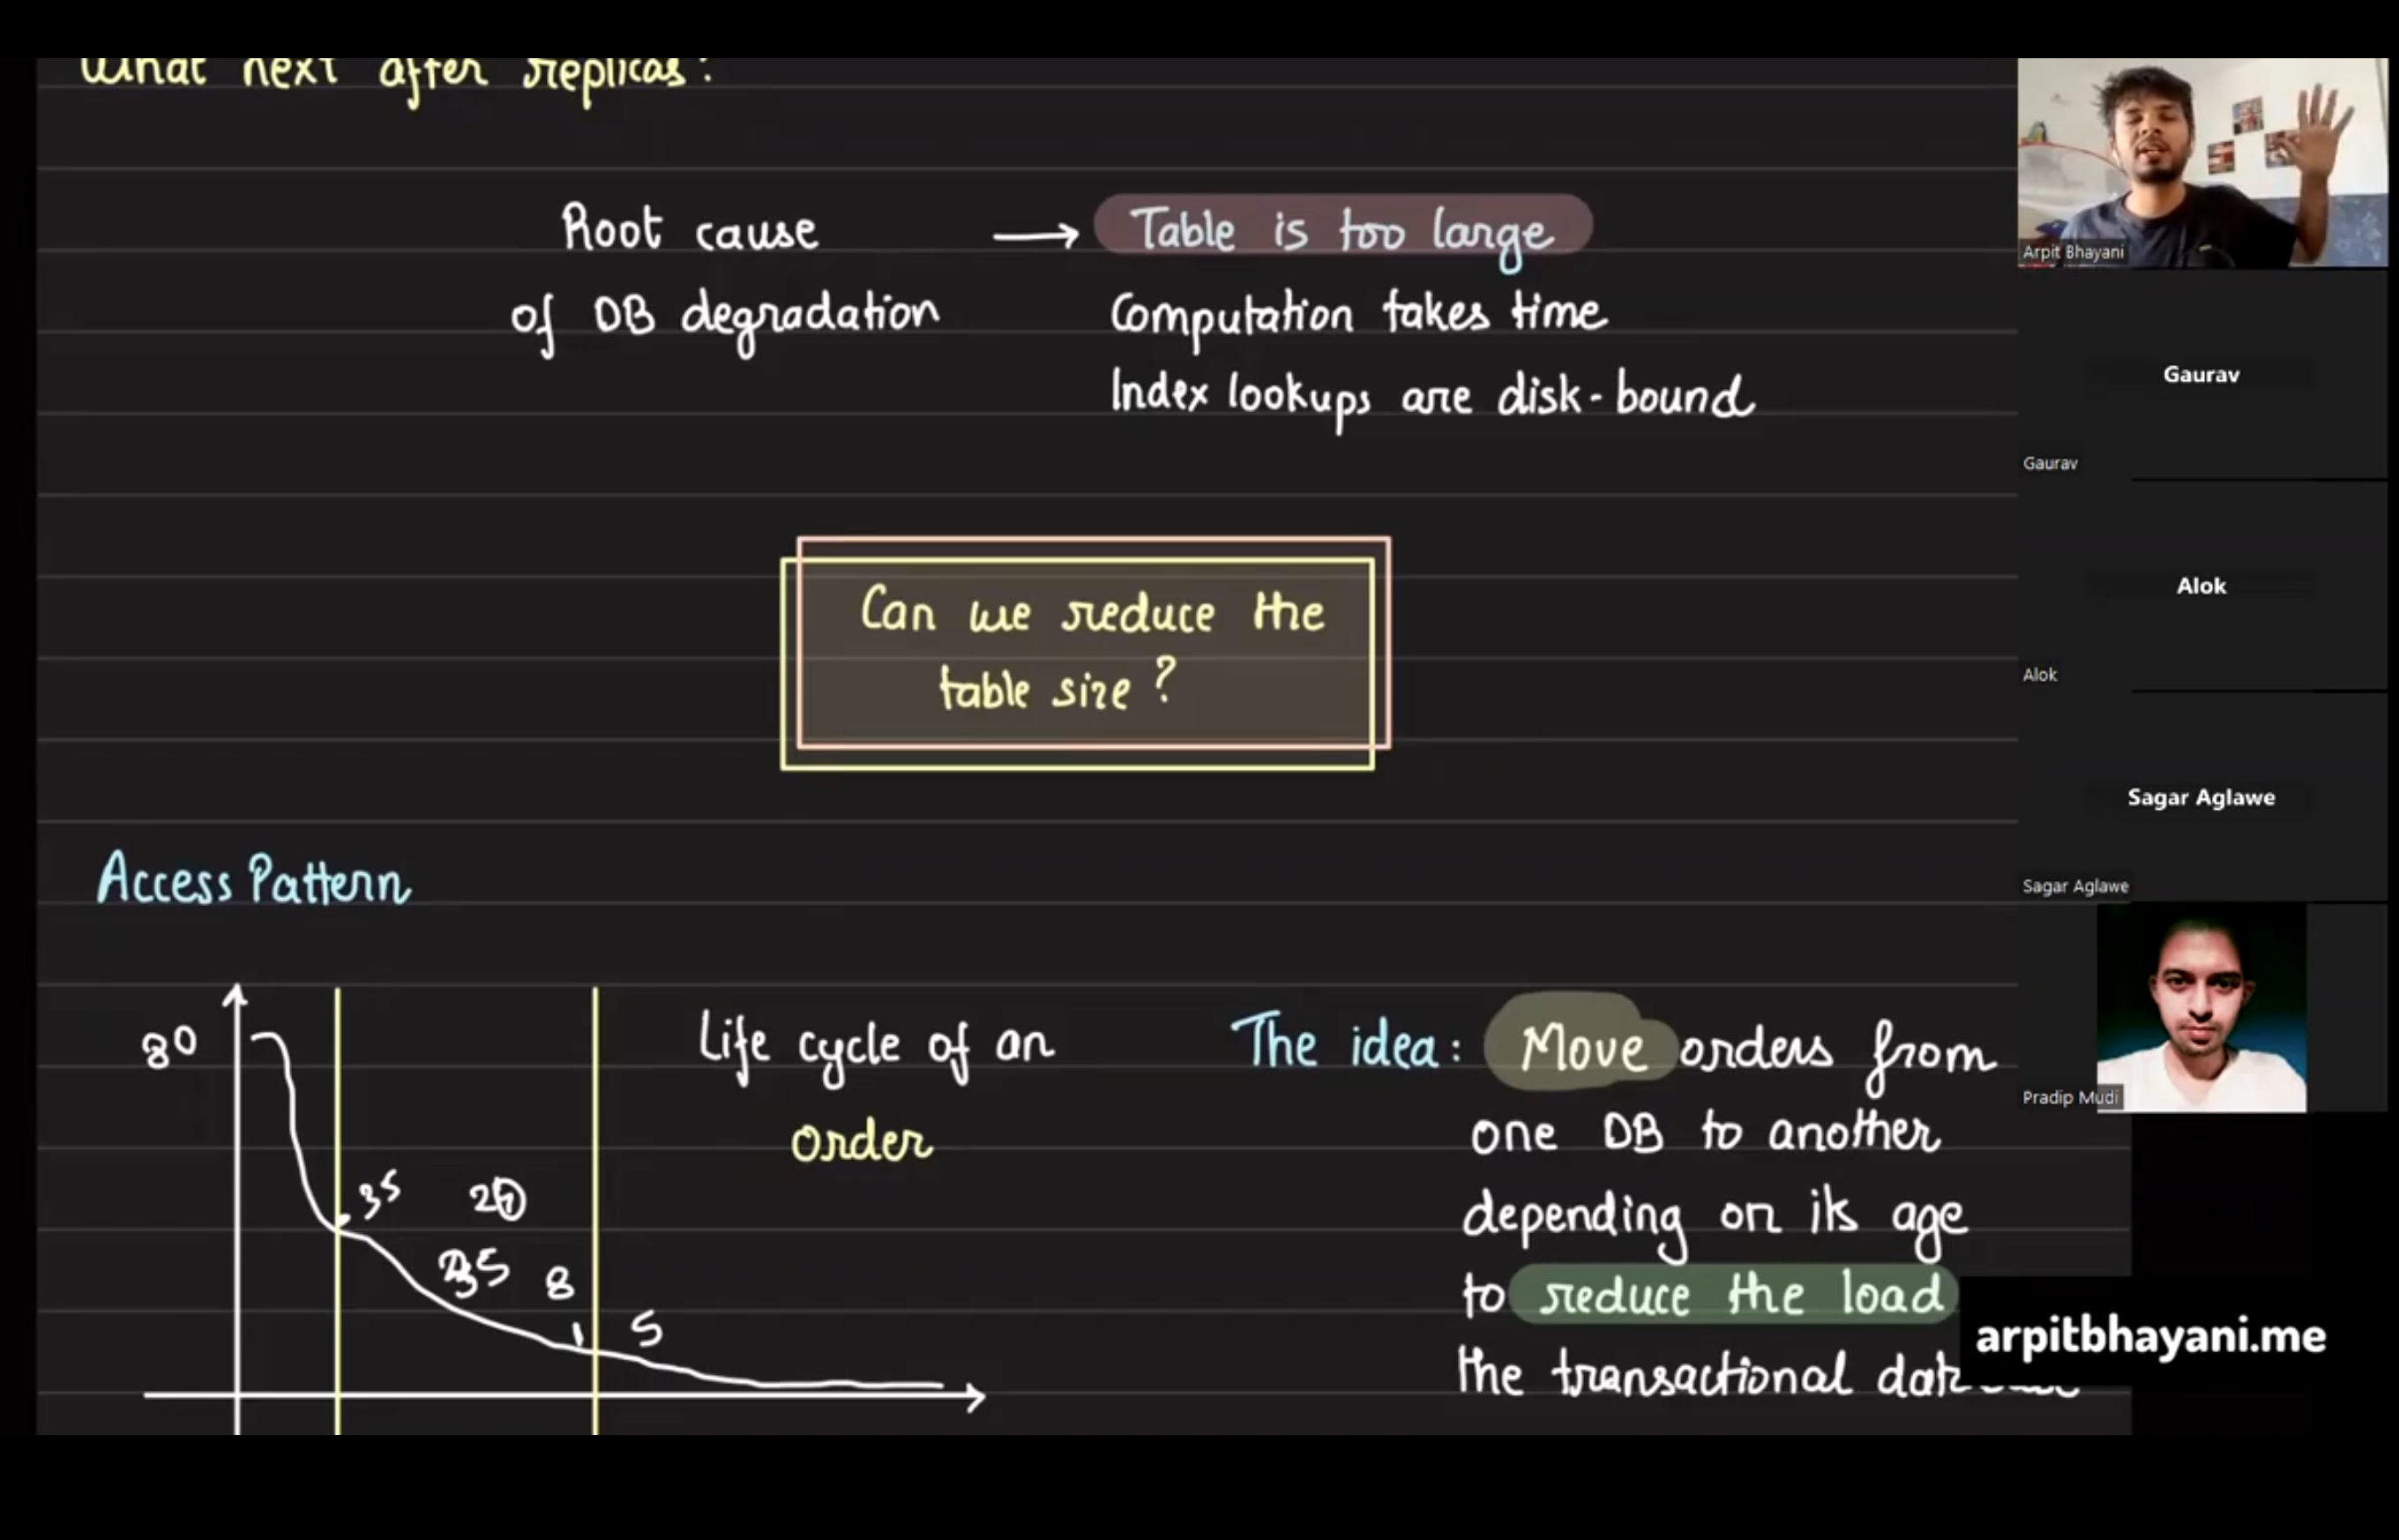 What next after replicas?
Root cause
of DB degradation
Table is too large
Computation takes time
Index lookups are disk-bound
Can we reduce the
table size?
Access Pattern
80
35
8
1
5
Life cycle of an
order
The idea: Move orders from
one DB to another
depending on its age
to reduce the load
the transactional
Arpit Bhayani
Gaurav
Gaurav
Alok
Alok
Sagar Aglawe
Sagar Aglawe
Pradip Mudi
arpitbhayani.me